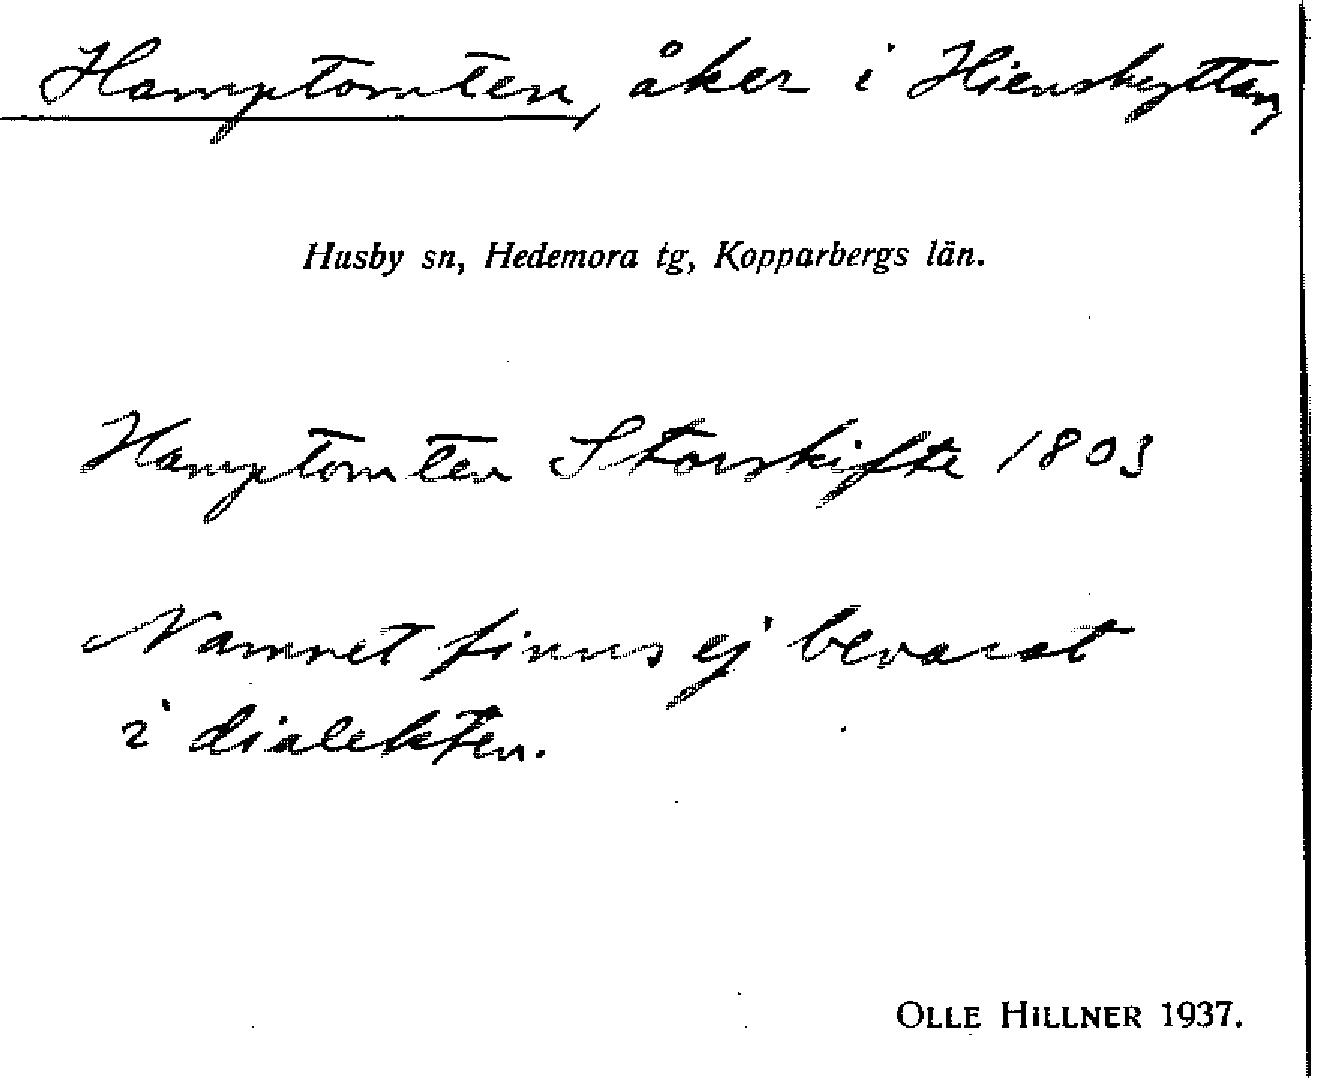 Hamptomten, åker i Hienshyttan,
Husby sn, Hedemora tg, Kopparbergs län.
Hamptomten Storskifte 1803
Namnet finns ej bevarat
i dialekten.
OLLE HILLNER 1937.